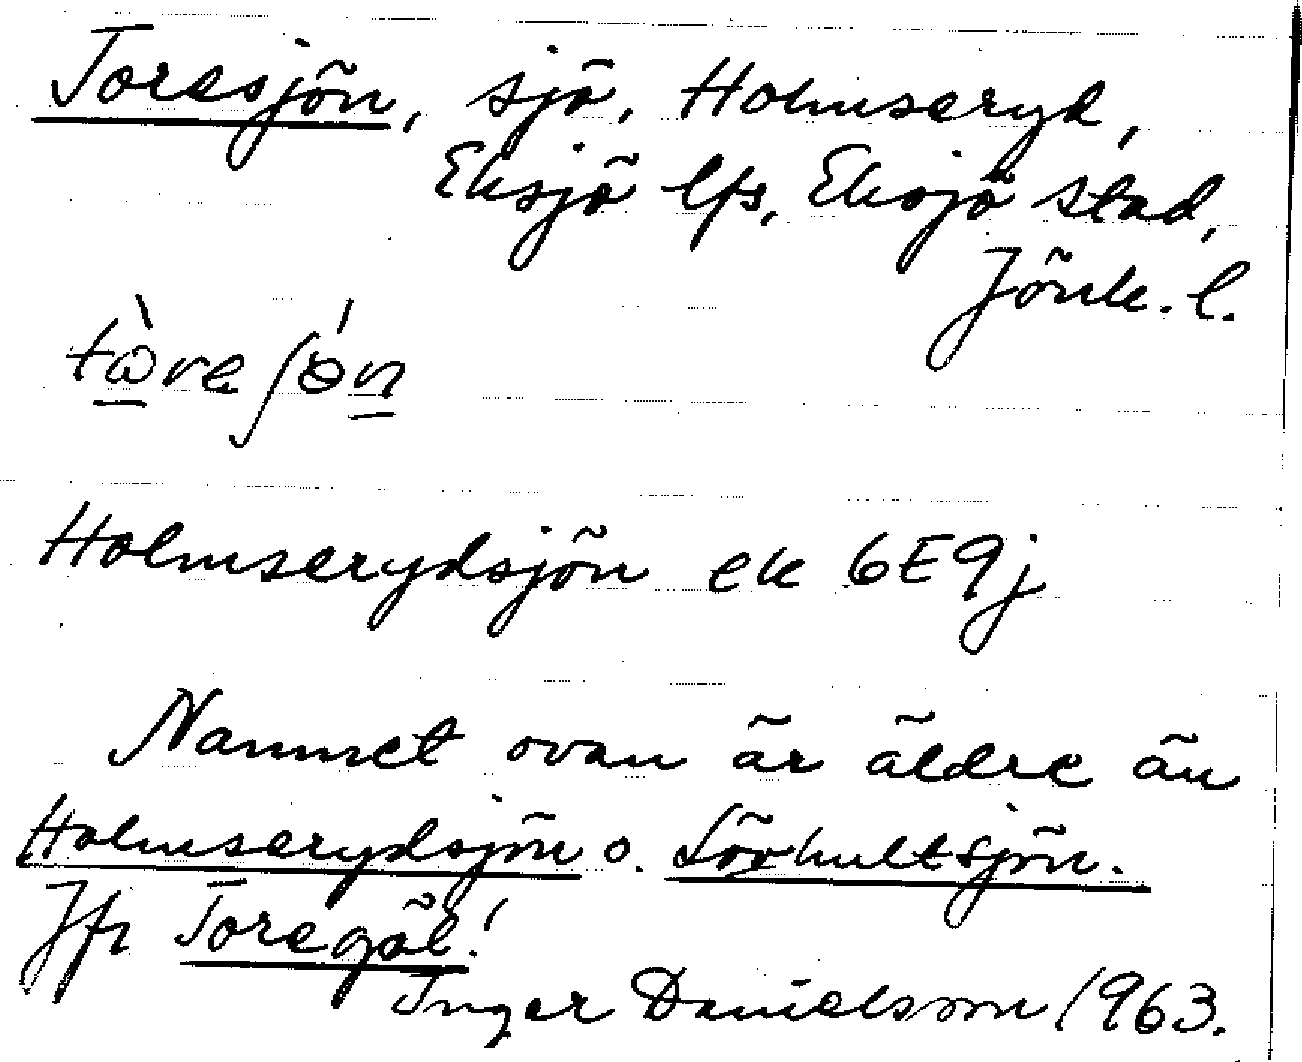 Toresjön, sjö, Holmseryd,
Eksjö lfs, Eksjö stad,
Jönk. l.
Holmserydsjön ek 6E9j
Namnet ovan är äldre än
Holmserydsjön o. Lövhultsjön.
Jfr Toregöl!
Inger Danielsson 1963.